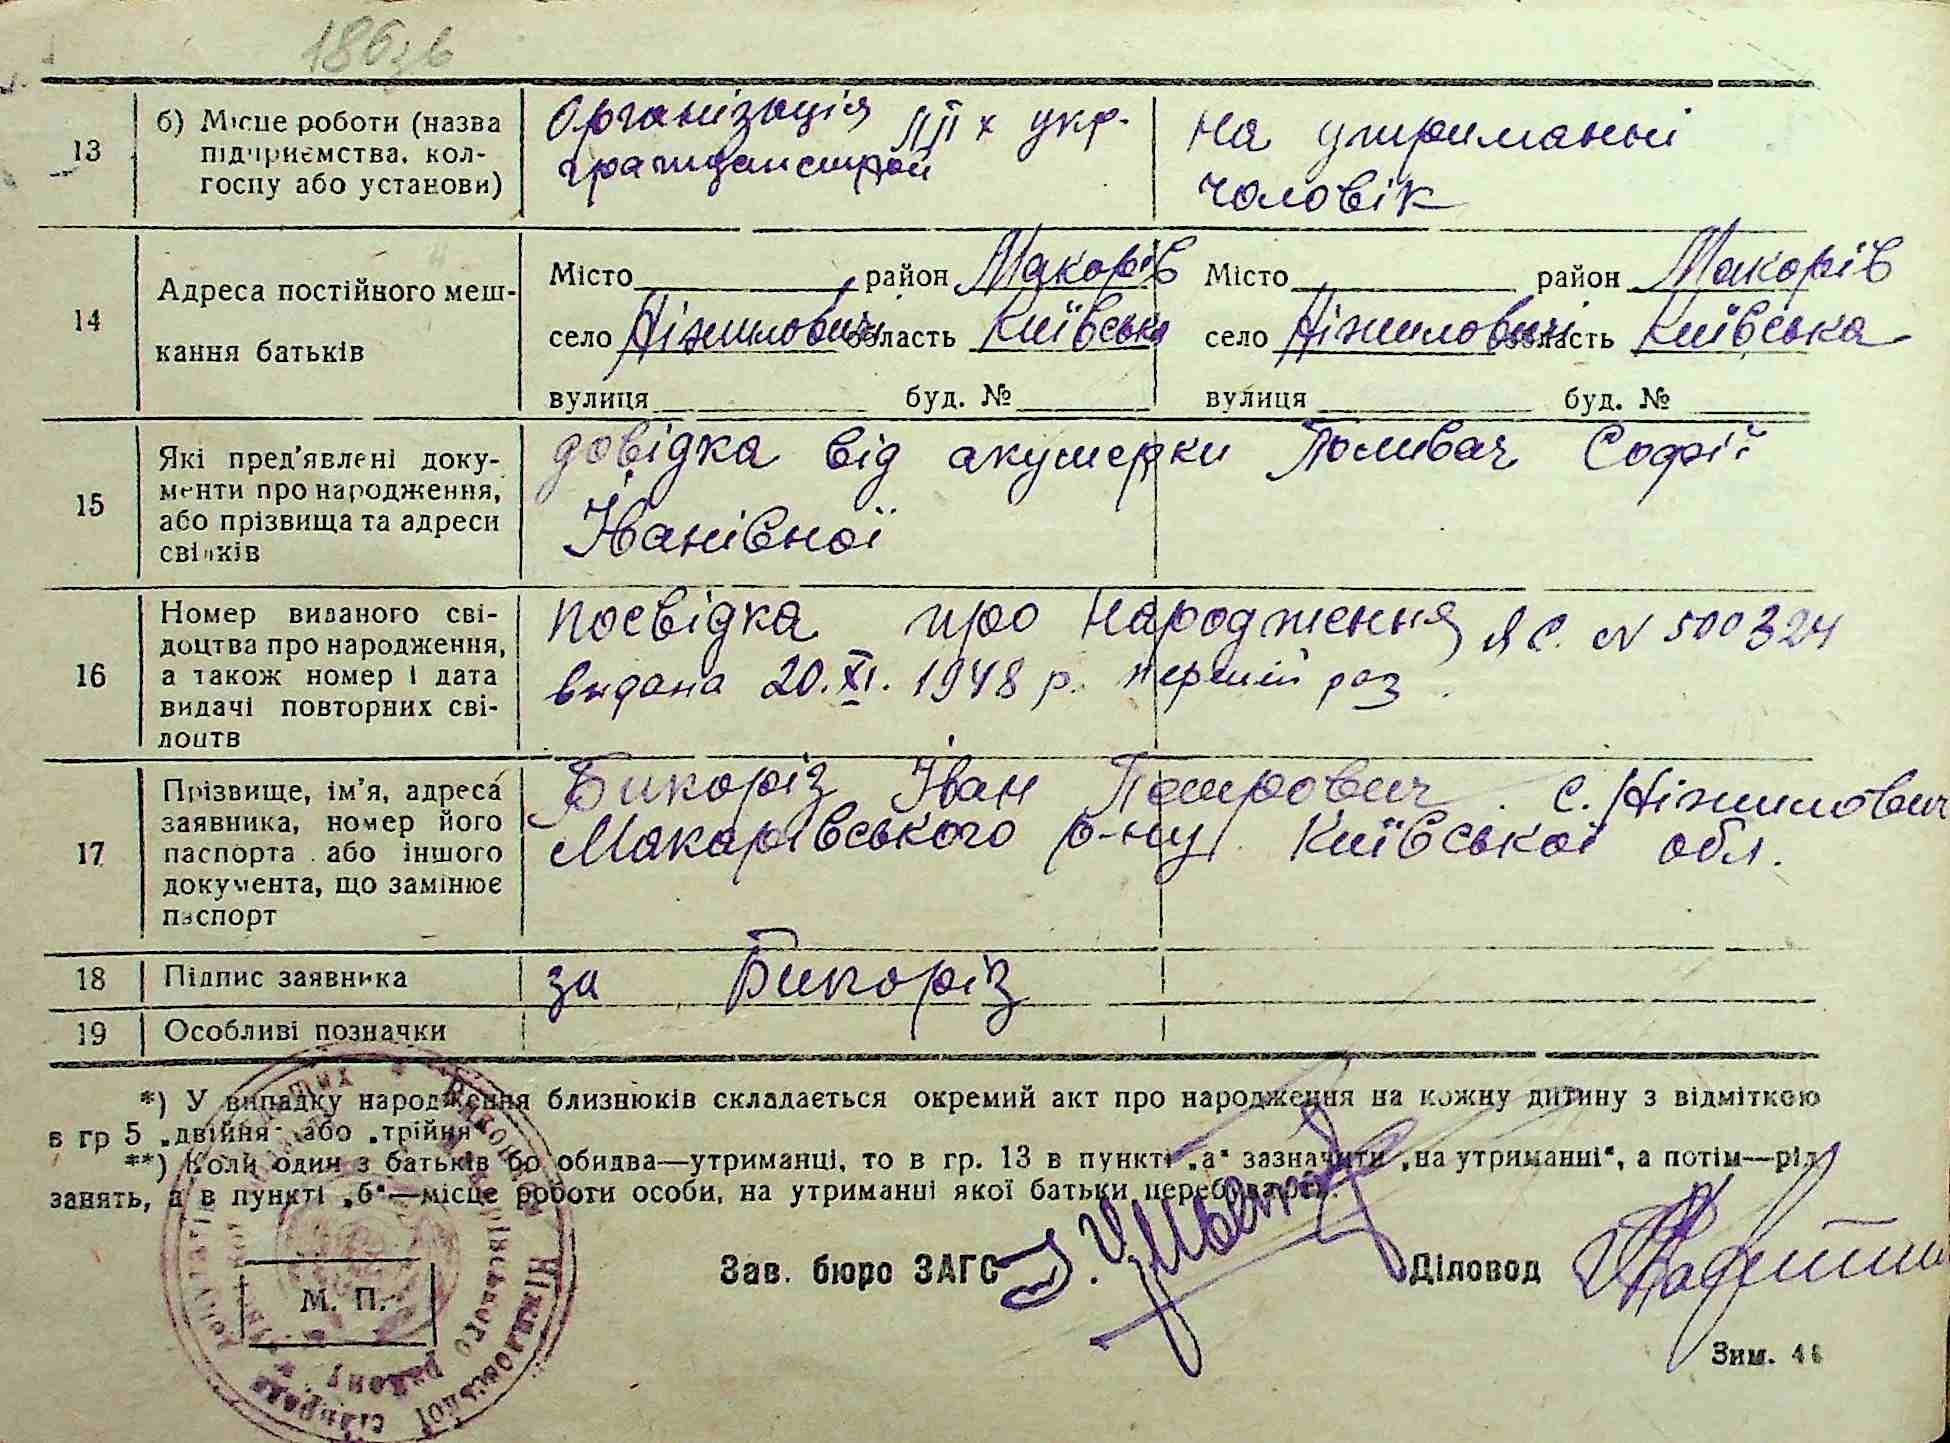 186 зв
13
б) Місце роботи (назва
підприємства, кол-
госпу або установи)
Організація ЛПх укр.
гражданстрой
На утриманні
чоловік
14
Адреса постійного меш-
кання батьків
Місто район Макорів
село Ніжиловичі область Київська
вулиця буд. №
Місто район Макорів
село Ніжиловичі область Київська
вулиця буд. №
15
Які пред'явлені доку-
менти про народження,
або прізвища та адреси
свідків
довідка від акушерки Поливач Софії
Іванівної
16
Номер виданого сві-
доцтва про народження,
а також номер і дата
видачі повторних сві-
доцтв
посвідка про народження ЯС. N 500324
видана 20.XI.1948 р. перший раз.
17
Прізвище, ім'я, адреса
заявника, номер його
паспорта або іншого
документа, що замінює
паспорт
Бикоріз Іван Петрович. с. Ніжилович
Макарівського р-ну Київської обл.
18
Підпис заявника
за Бикоріз
19
Особливі позначки
*) У випадку народження близнюків складається окремий акт про народження на кожну дитину з відміткою
в гр 5 „двійня" або „трійня"
**) Коли один з батьків бо обидва—утриманці, то в гр. 13 в пункті „а" зазначити „на утриманні", а потім—рід
занять, а в пункті „б"—місце роботи особи, на утриманні якої батьки перебувають.
Зав. бюро ЗАГС
Діловод
М. П.
Ніжиловської сільради
Макарівського району
Зим. 46